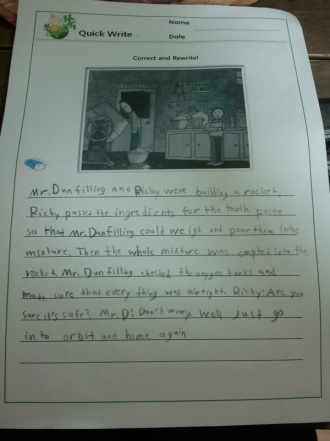 Name
Quick Write
Date
Correct and Rewrite!
Mr. Dunfilling and Ricky were building a rocket.
Ricky passed the ingredients for the tooth paste
so that Mr. Dunfilling could weigh and pour them in the
mixture. Then the whole mixture was emptied into the
rocket. Mr. Dunfilling checked the oxygen tanks and
made sure that every thing was airtight. Ricky: Are you
sure it's safe? Mr. D: Don't worry. Well just go
in to orbit and home again